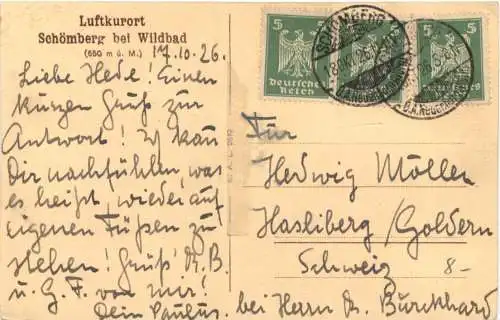 Luftkurort
Schömberg bei Wildbad
(650 m ü. M.) 17.10.26.
Liebe Hede! Einen
kurzen Gruß zur
Antwort! Ich kann
Dir nachfühlen, was
es heißt, wieder auf
eigenen Füßen zu
stehen! Gruß Dr. B.
u. G. F. von mir!
Dein Paulus.
5 5 5
Deutsches
Reich
SCHÖMBERG
Für
Hedwig Möller
Hasliberg/Goldern
Schweiz 8-
bei Herrn Dr. Burckhard